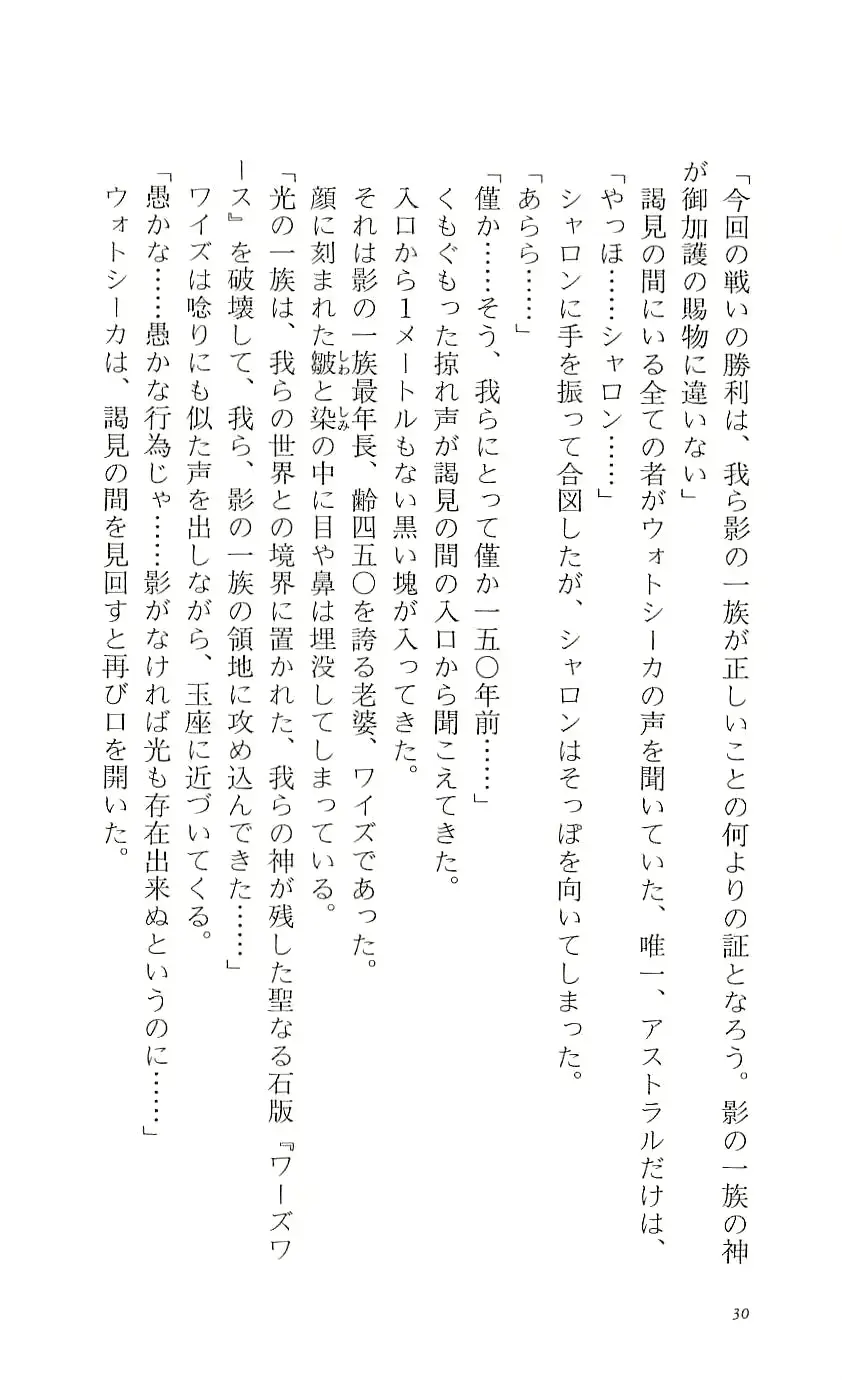 「今回の戦いの勝利は、我ら影の一族が正しいことの何よりの証となろう。影の一族の神
が御加護の賜物に違いない」
謁見の間にいる全ての者がウォトシーカの声を聞いていた、唯一、アストラルだけは、
「やっほ……シャロン……」
シャロンに手を振って合図したが、シャロンはそっぽを向いてしまった。
「あらら……」
「僅か……そう、我らにとって僅か一五〇年前……」
くもぐもった掠れ声が謁見の間の入口から聞こえてきた。
入口から1メートルもない黒い塊が入ってきた。
それは影の一族最年長、齢四五〇を誇る老婆、ワイズであった。
顔に刻まれた皺しわと染しみの中に目や鼻は埋没してしまっている。
「光の一族は、我らの世界との境界に置かれた、我らの神が残した聖なる石版『ワーズワ
ース』を破壊して、我ら、影の一族の領地に攻め込んできた……」
ワイズは唸りにも似た声を出しながら、玉座に近づいてくる。
「愚かな……愚かな行為じゃ……影がなければ光も存在出来ぬというのに……」
ウォトシーカは、謁見の間を見回すと再び口を開いた。
30